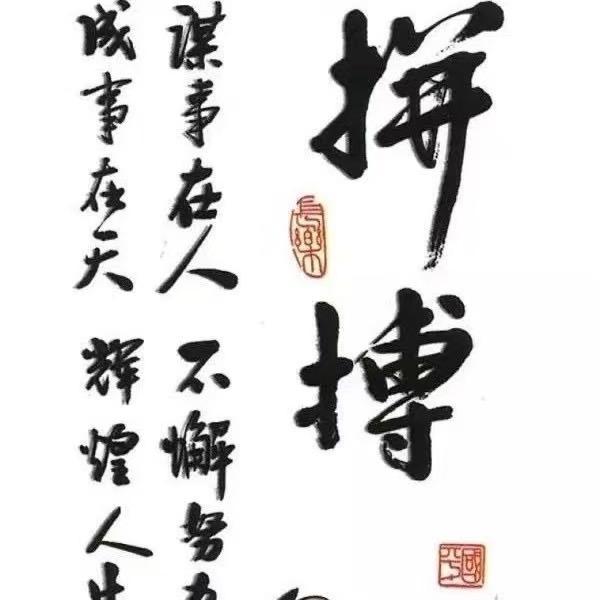 拼搏
谋事在人 不懈努力
成事在天 辉煌人生
长乐